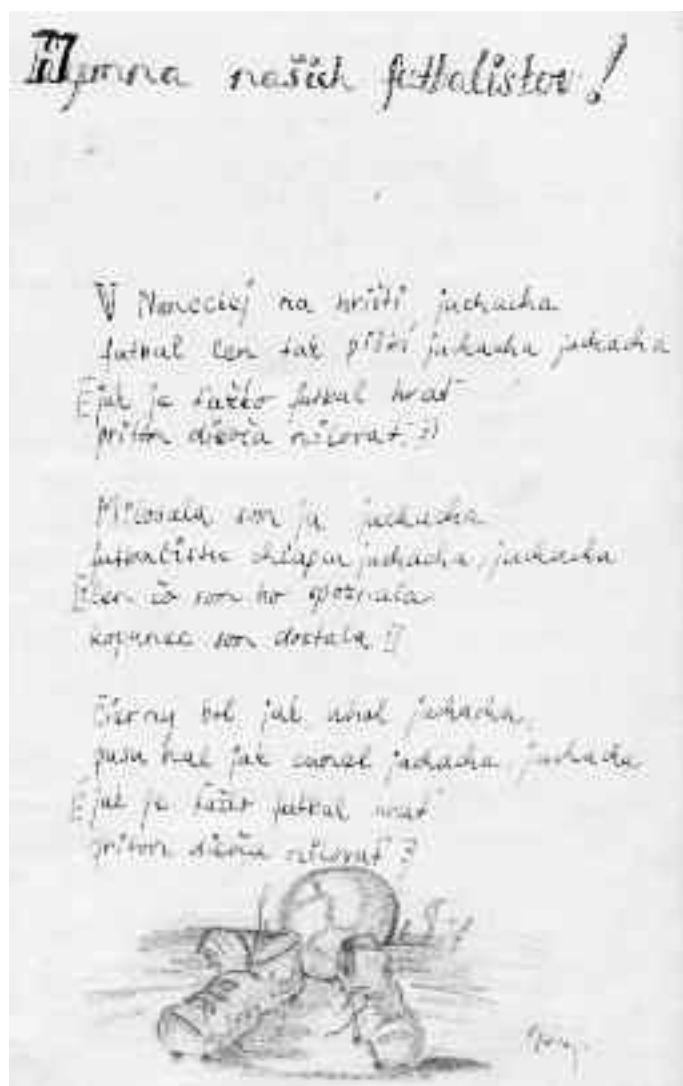 Hymna našich futbalistov!
V na hrišti juchacha
futbal len tak piští juchacha juchacha
jak je ťažko futbal hrať
pritom dievča milovať
Milovala som ja juchacha
futbalistu chlapca juchacha, juchacha
len čo som ho spoznala
kopanec som dostala
Čierny bol jak uhol juchacha,
jak juchacha, juchacha
jak je ťažko futbal hrať
pritom dievča milovať